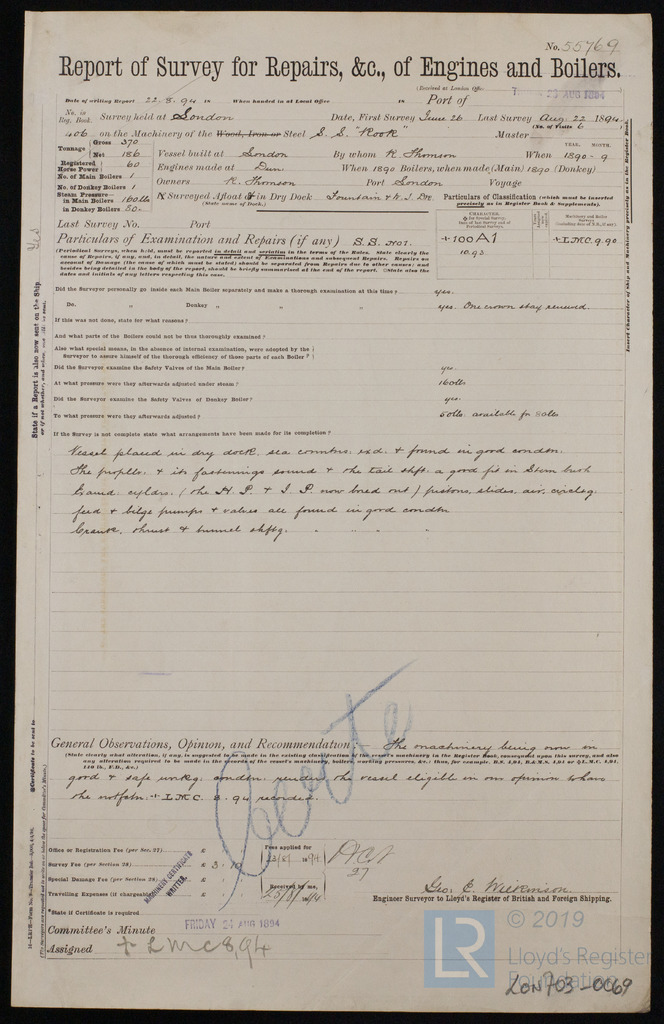 No. 55769
Report of Survey for Repairs, &c., of Engines and Boilers.
(Received at London Office
23 AUG 1894
Date of writing Report 22.8.94 When handed in at Local Office Port of
No. in Reg. Book. Survey held at London Date, First Survey June 26 Last Survey Aug. 22 1894
(No. of Visits 6)
406 on the Machinery of the Wood, Iron or Steel S.S. "Rook" Master
Tonnage Gross 370
Net 186
Vessel built at London By whom R. Thomson When 1890-9
YEAR. MONTH.
Registered Horse Power 60
Engines made at Dun. When 1890 Boilers, when made (Main) 1890 (Donkey)
No. of Main Boilers 1
No. of Donkey Boilers 1
Owners R. Thomson Port London Voyage
Steam Pressure in Main Boilers 160 lbs
in Donkey Boilers 50
If Surveyed Afloat or in Dry Dock Fountain & W. I. Dk.
(State name of Dock.)
Particulars of Classification (which must be inserted precisely as in Register Book & Supplements).
Last Survey No. Port
+100A1
10.93
+L.M.C. 9.90
Particulars of Examination and Repairs (if any) S.S. No1.
(Periodical Surveys, when held, must be reported in detail and seriatim in the terms of the Rules. State clearly the
cause of Repairs, if any, and, in detail, the nature and extent of Examinations and subsequent Repairs. Repairs on
account of Damage (the cause of which must be stated) should be separated from Repairs due to other causes; and
besides being detailed in the body of the report, should be briefly summarised at the end of the report. State also the
dates and initials of any letters respecting this case.
Did the Surveyor personally go inside each Main Boiler separately and make a thorough examination at this time? yes.
Do. " Donkey " " " " yes. One crown stay renewed.
If this was not done, state for what reasons?
And what parts of the Boilers could not be thus thoroughly examined?
Also what special means, in the absence of internal examination, were adopted by the
Surveyor to assure himself of the thorough efficiency of those parts of each Boiler?
Did the Surveyor examine the Safety Valves of the Main Boiler? yes.
At what pressure were they afterwards adjusted under steam? 160 lbs
Did the Surveyor examine the Safety Valves of Donkey Boiler? yes.
To what pressure were they afterwards adjusted? 50 lbs. available for 80 lbs
If the Survey is not complete state what arrangements have been made for its completion?
Vessel placed in dry dock, sea conntns. exd. & found in good condtn.
The propllr. & its fastenings sound & the tail shft. a good fit in Stern bush
cyldrs. (the H.P. & I.P. now bored out) pistons, slides, air, circltg.
feed & bilge pumps & valves all found in good condtn
Crank, thrust & tunnel shftg. " " " "
General Observations, Opinion, and Recommendation:— The machinery being now in
(State clearly what alteration, if any, is suggested to be made in the existing classification of the vessel's machinery in the Register Book, consequent upon this survey, and also
any alteration required to be made in the records of the vessel's machinery, boilers, working pressures, &c.: thus, for example, B.S. 4,91, B.&M.S. 4,91 or +L.M.C. 4,91,
140 lb., F.D., &c.)
good & safe wrkg. condtn. renders the vessel eligible in our opinion to have
the notfctn. + L.M.C. 8.94 recorded.
Office or Registration Fee (per Sec. 27) £
Survey Fee (per Section 28) £ 3.10
Special Damage Fee (per Section 28) £
Travelling Expenses (if chargeable) £
Fees applied for
23/8/1894
Received by me,
MACHINERY CERTIFICATE
WRITTEN.
Geo. E. Wilkinson
Engineer Surveyor to Lloyd's Register of British and Foreign Shipping.
*State if Certificate is required
Committee's Minute FRIDAY 24 AUG 1894
Assigned + LMC 8,94
State if a Report is also now sent on the Ship. Yes
Insert Character of Ship and Machinery precisely as in the Register Book
© 2019
LR
Lloyd's Register
Foundation
LON703-0069